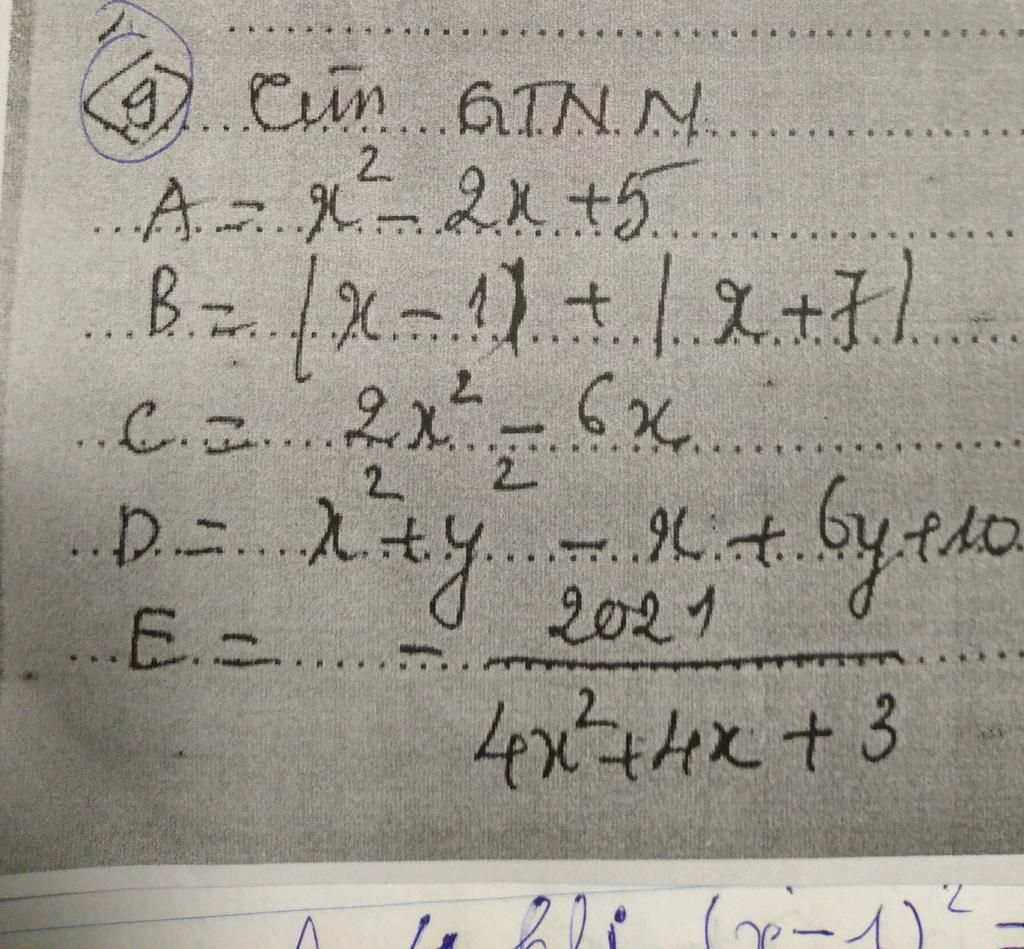 9 Tìm GTNN
A = x² - 2x + 5
B = |x - 1| + |x + 7|
C = 2x² - 6x
D = x² + y² - x + 6y + 10
E = - 2021 / (4x² + 4x + 3)
khi (x - 1)² =